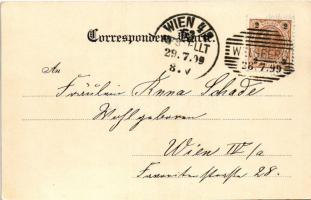 WIEN 4/1
BESTELLT
29.7.99
8.V
Correspondenz-Karte.
WELSBERG
28.7.99
An
Fräulein Anna Schade
Wohlgeboren
Wien IV/a
Favoritenstraße 28.